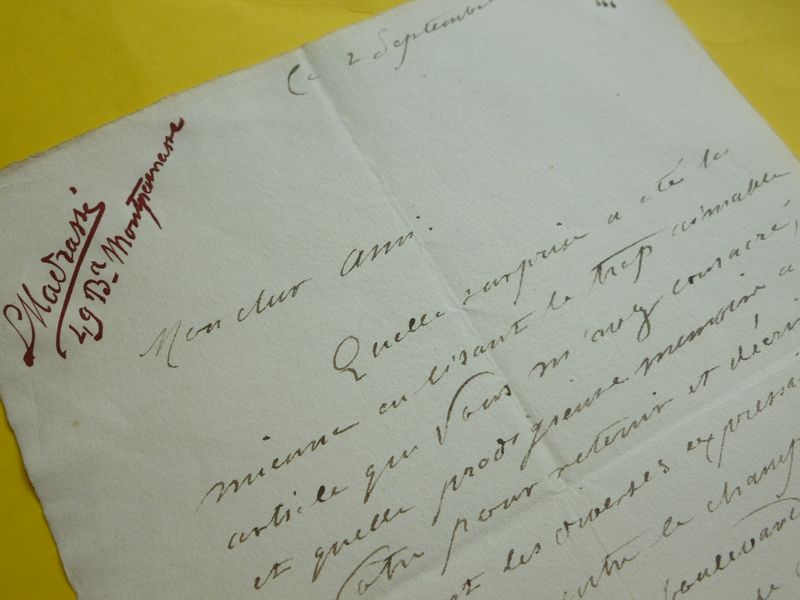 Ce 2 Septembre
L Madrassi
49 Bd Montparnasse
Mon cher ami.
Quelle surprise a été la
mienne en lisant le trop aimable
article que vous m'avez consacré,
et quelle prodigieuse memoire a
votre pour retenir et décri
et les diverses expressi
entre le champ
boulevard
de